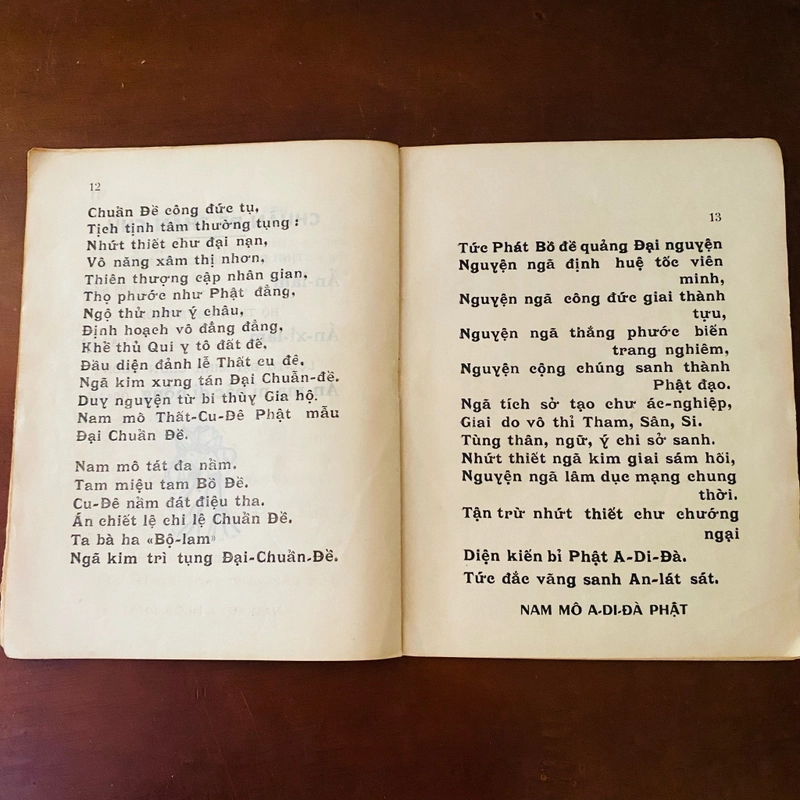 12
Chuẩn Đề công đức tụ,
Tịch tịnh tâm thường tụng :
Nhứt thiết chư đại nạn,
Vô năng xâm thị nhơn,
Thiên thượng cập nhân gian,
Thọ phước như Phật đẳng,
Ngộ thử như ý châu,
Định hoạch vô đẳng đẳng,
Khể thủ Qui y tô đất đế,
Đầu diện đảnh lễ Thất cu đê.
Ngã kim xưng tán Đại Chuẩn-đề.
Duy nguyện từ bi thùy Gia hộ.
Nam mô Thất-Cu-Đê Phật mẫu
Đại Chuẩn Đề.
Nam mô tát đa nẫm.
Tam miệu tam Bồ Đề.
Cu-Đê nẫm đát điệu tha.
Án chiết lệ chi lệ Chuẩn Đề.
Ta bà ha «Bộ-lam»
Ngã kim trì tụng Đại-Chuẩn-Đề.
13
Tức Phát Bồ đề quảng Đại nguyện
Nguyện ngã định huệ tốc viên
minh,
Nguyện ngã công đức giai thành
tựu,
Nguyện ngã thắng phước biến
trang nghiêm,
Nguyện cộng chúng sanh thành
Phật đạo.
Ngã tích sở tạo chư ác-nghiệp,
Giai do vô thỉ Tham, Sân, Si.
Tùng thân, ngữ, ý chi sở sanh.
Nhứt thiết ngã kim giai sám hối,
Nguyện ngã lâm dục mạng chung
thời.
Tận trừ nhứt thiết chư chướng
ngại
Diện kiến bỉ Phật A-Di-Đà.
Tức đắc vãng sanh An-lát sát.
NAM MÔ A-DI-ĐÀ PHẬT